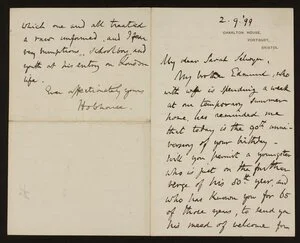 2. 9. '99
CHARLTON HOUSE,
PORTBURY,
BRISTOL.
My dear Sarah
My brother Edmund, who
with wife is spending a week
at our temporary summer
home, has reminded me
that today is the 90th anni-
versary of your birthday.
Will you permit a youngster
who is just on the further
verge of his 80th year, and
who has known you for 65
of those years, to send you
his meed of welcome for
which one and all treated
a raw uninformed, and I fear
very bumptious, schoolboy and
youth at his entry on London
life.
Ever affectionately yours
Hobhouse